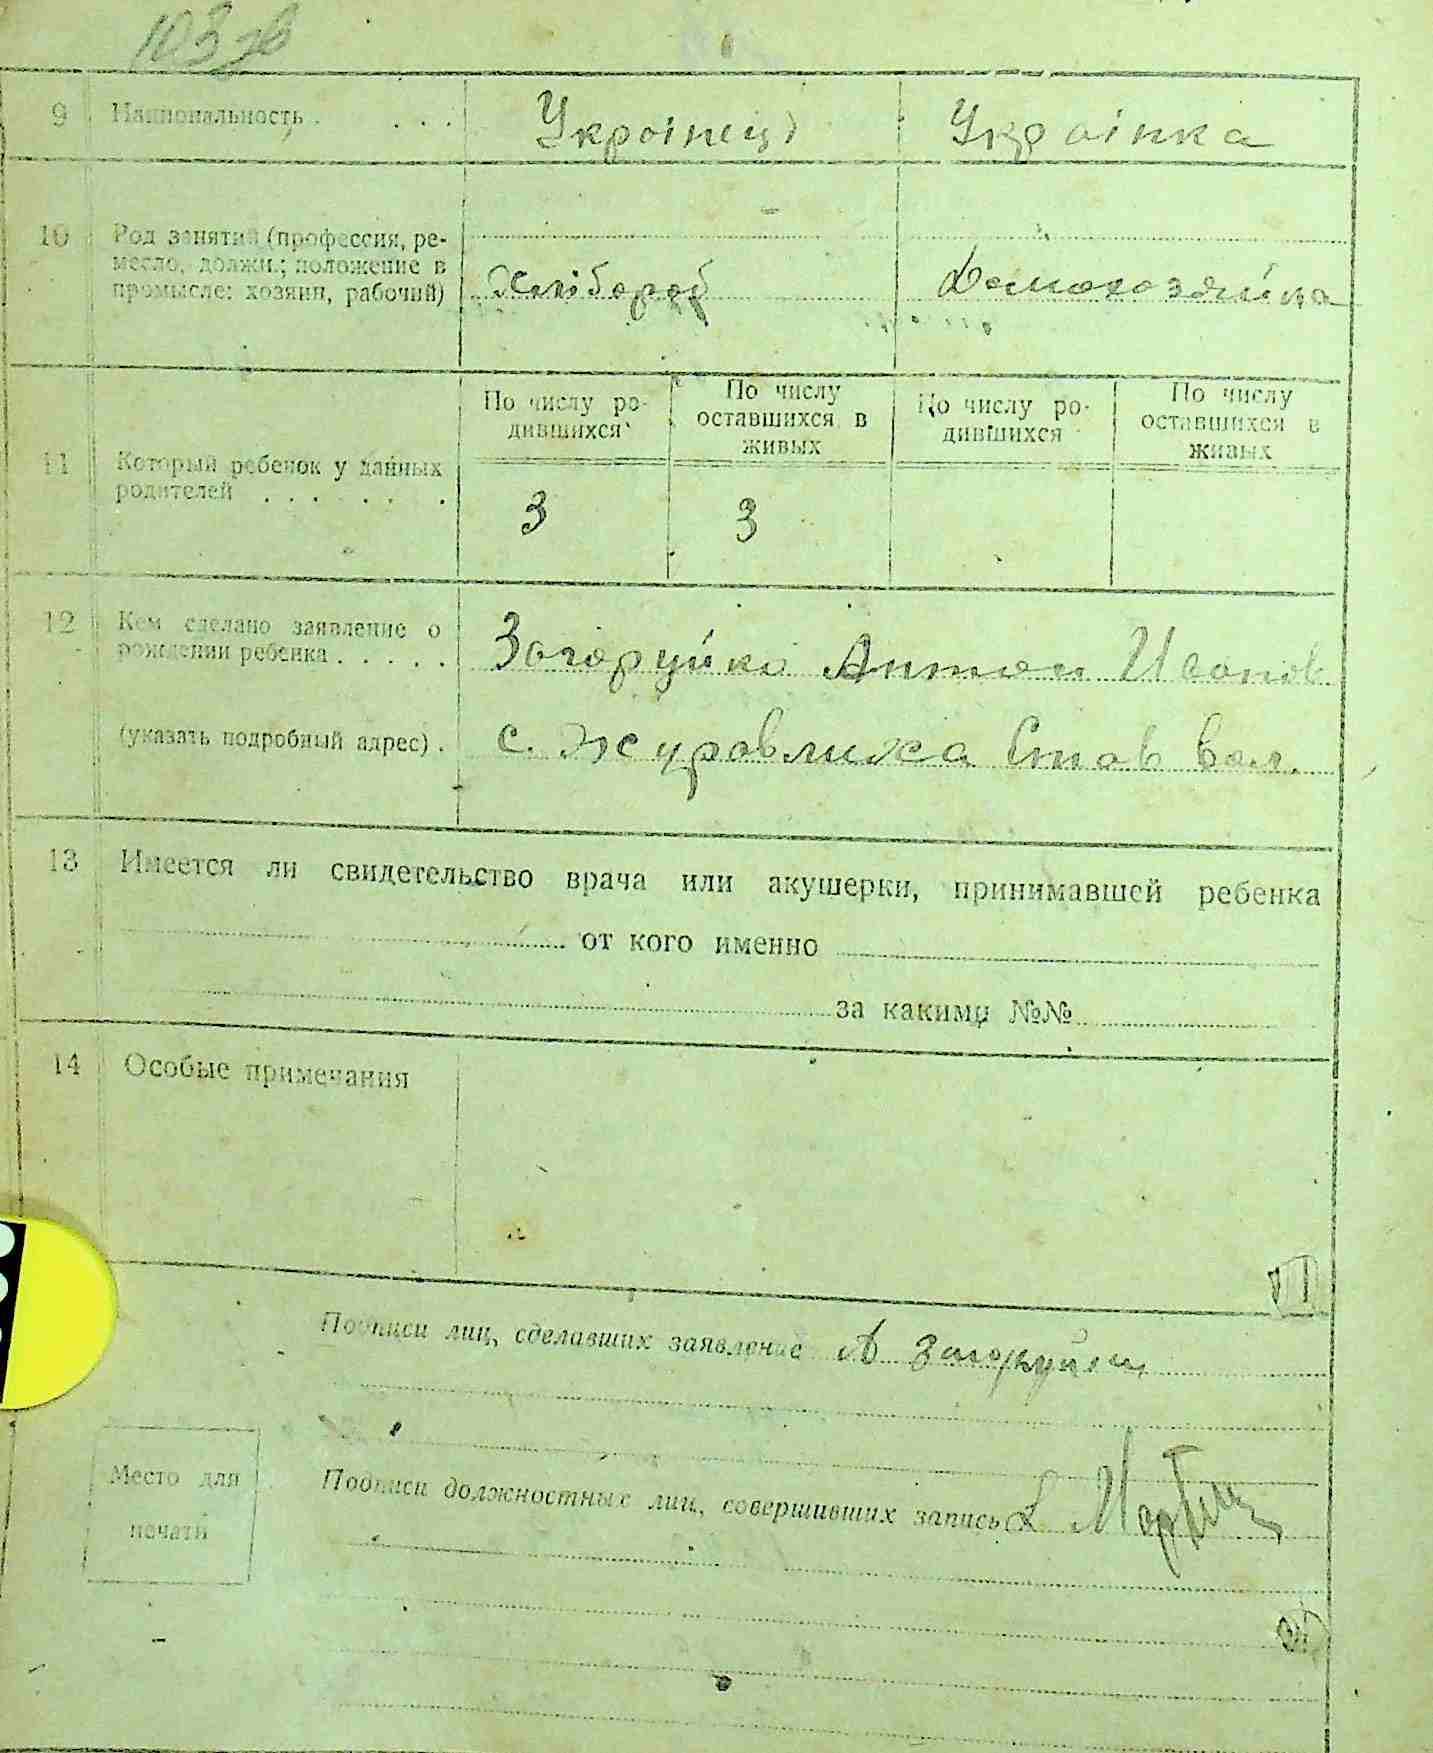 103 зв
9 Национальность . . . . Українець Українка
10 Род занятий (профессия, ре-
месло, должн.; положение в
промысле: хозяин, рабочий) Хлібороб Домохозяйка
По числу ро-
дившихся
По числу
оставшихся в
живых
По числу ро-
дившихся
По числу
оставшихся в
живых
11 Который ребенок у данных
родителей . . . . . . 3 3
12 Кем сделано заявление о
рождении ребенка . . . . . Загоруйко Антон Иванов
(указать подробный адрес) . с. Журавлиха Став вол.
13 Имеется ли свидетельство врача или акушерки, принимавшей ребенка
от кого именно
за какими №№
14 Особые примечания
Подписи лиц, сделавших заявление А Загоруйко
Место для
печати
Подписи должностных лиц, совершивших запись